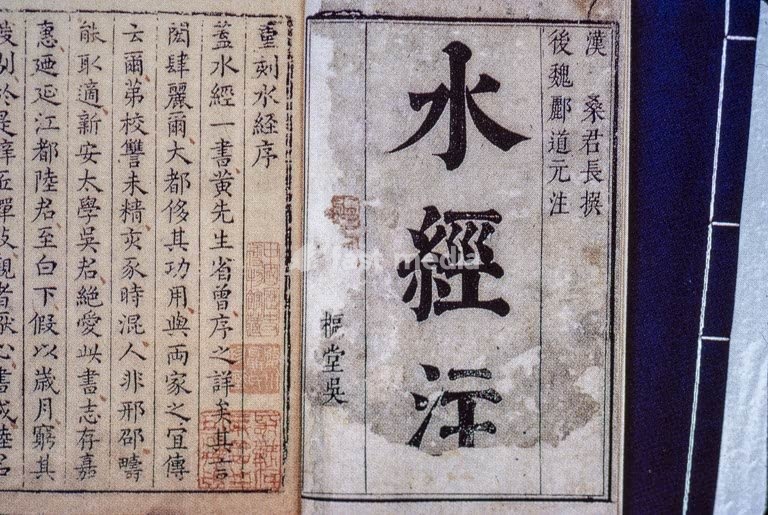 漢 桑君長撰
後魏酈道元注
水經注
堂吳
重刻水經序
蓋水經一書黃先生省曾序之詳矣其言
閎肆麗爾大都侈其功用與兩家之宜傳
云爾第校讐未精亥豕時混人非邢邵疇
能取適新安太學吳君絕愛此書志存嘉
惠廼延江都陸君至白下假以歲月窮其
別於是 觀者厭心書成陸君
media